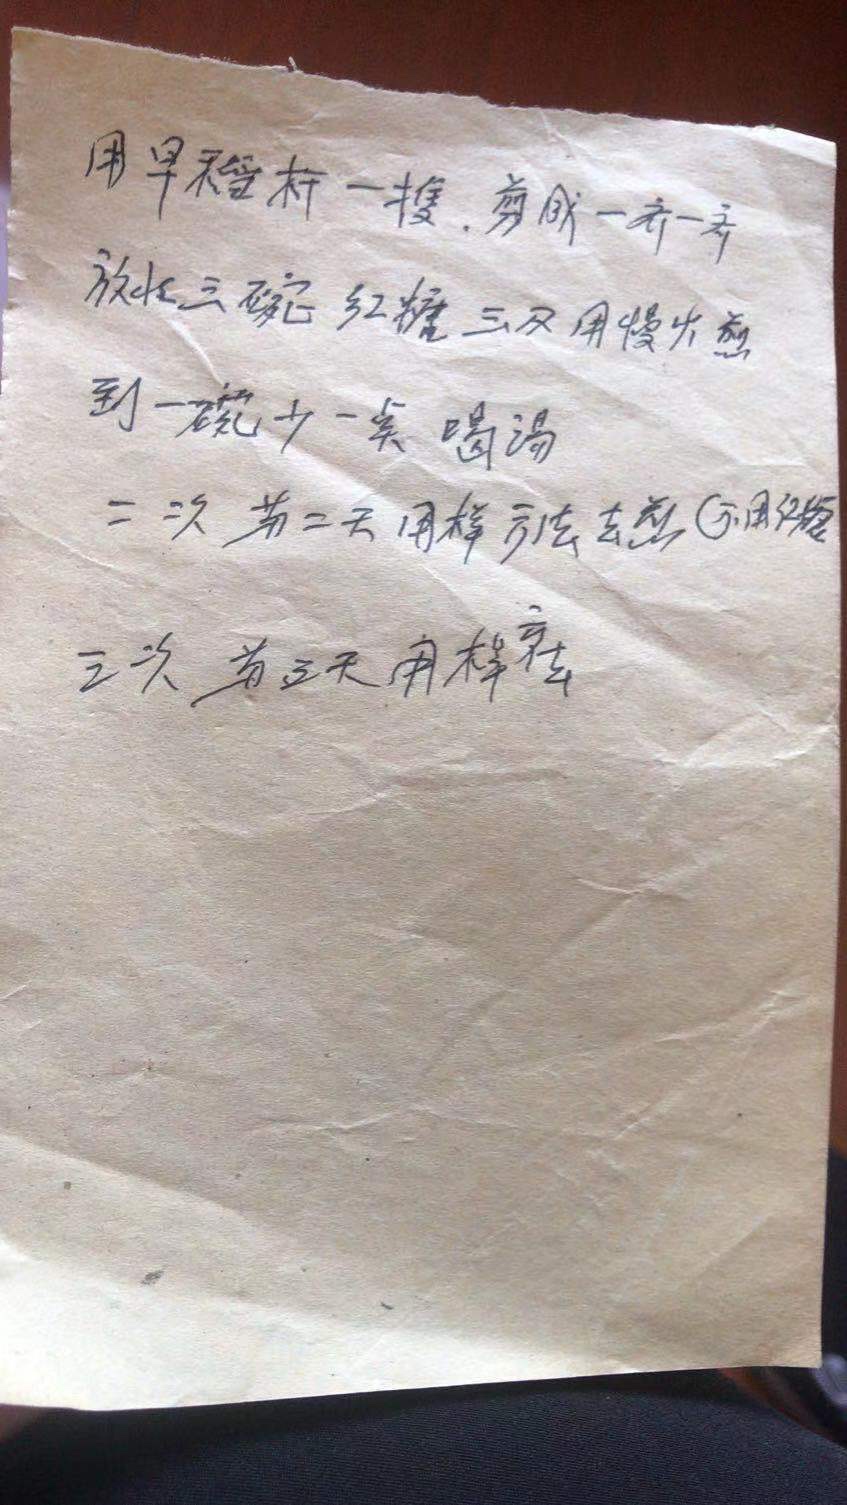 用早稻杆一把.剪成一齐一齐
放水三碗 红糖 三又用慢火煎
到一碗少一点 喝汤
二次 第二天 用样方法去煎(不用红糖
三次 第三天 用样方法